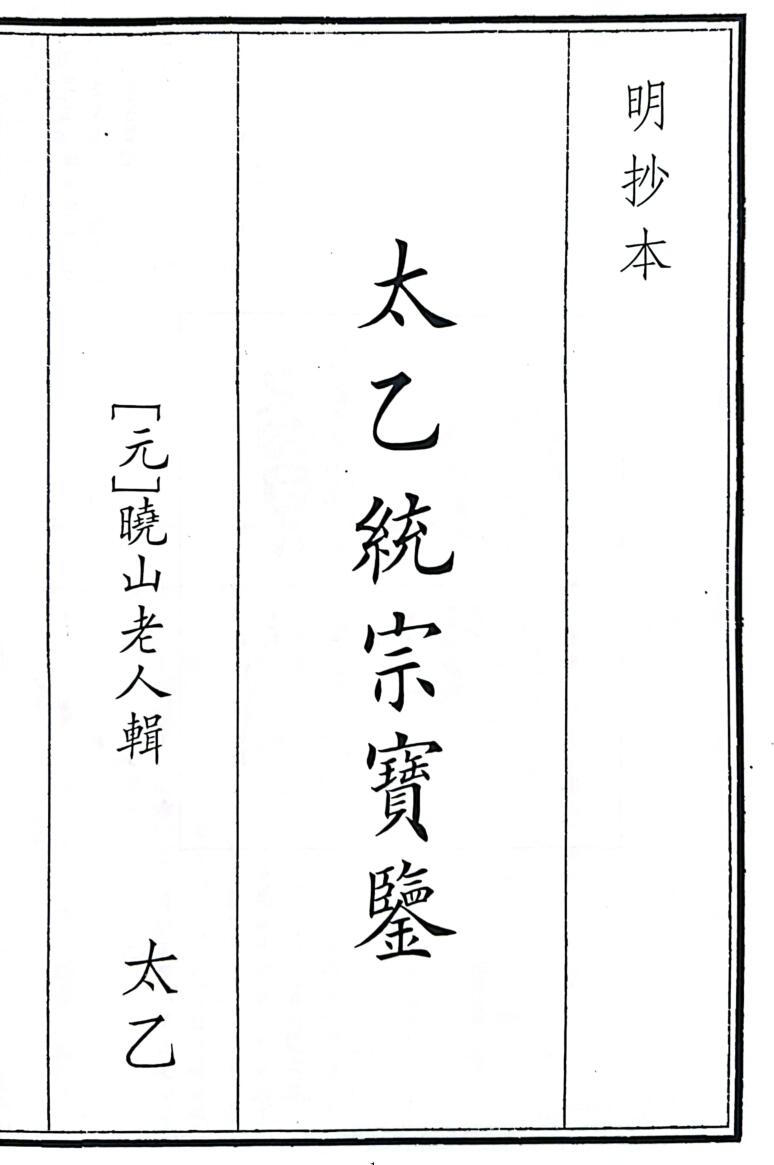 明抄本
太乙統宗寶鑒
[元]曉山老人輯
太乙